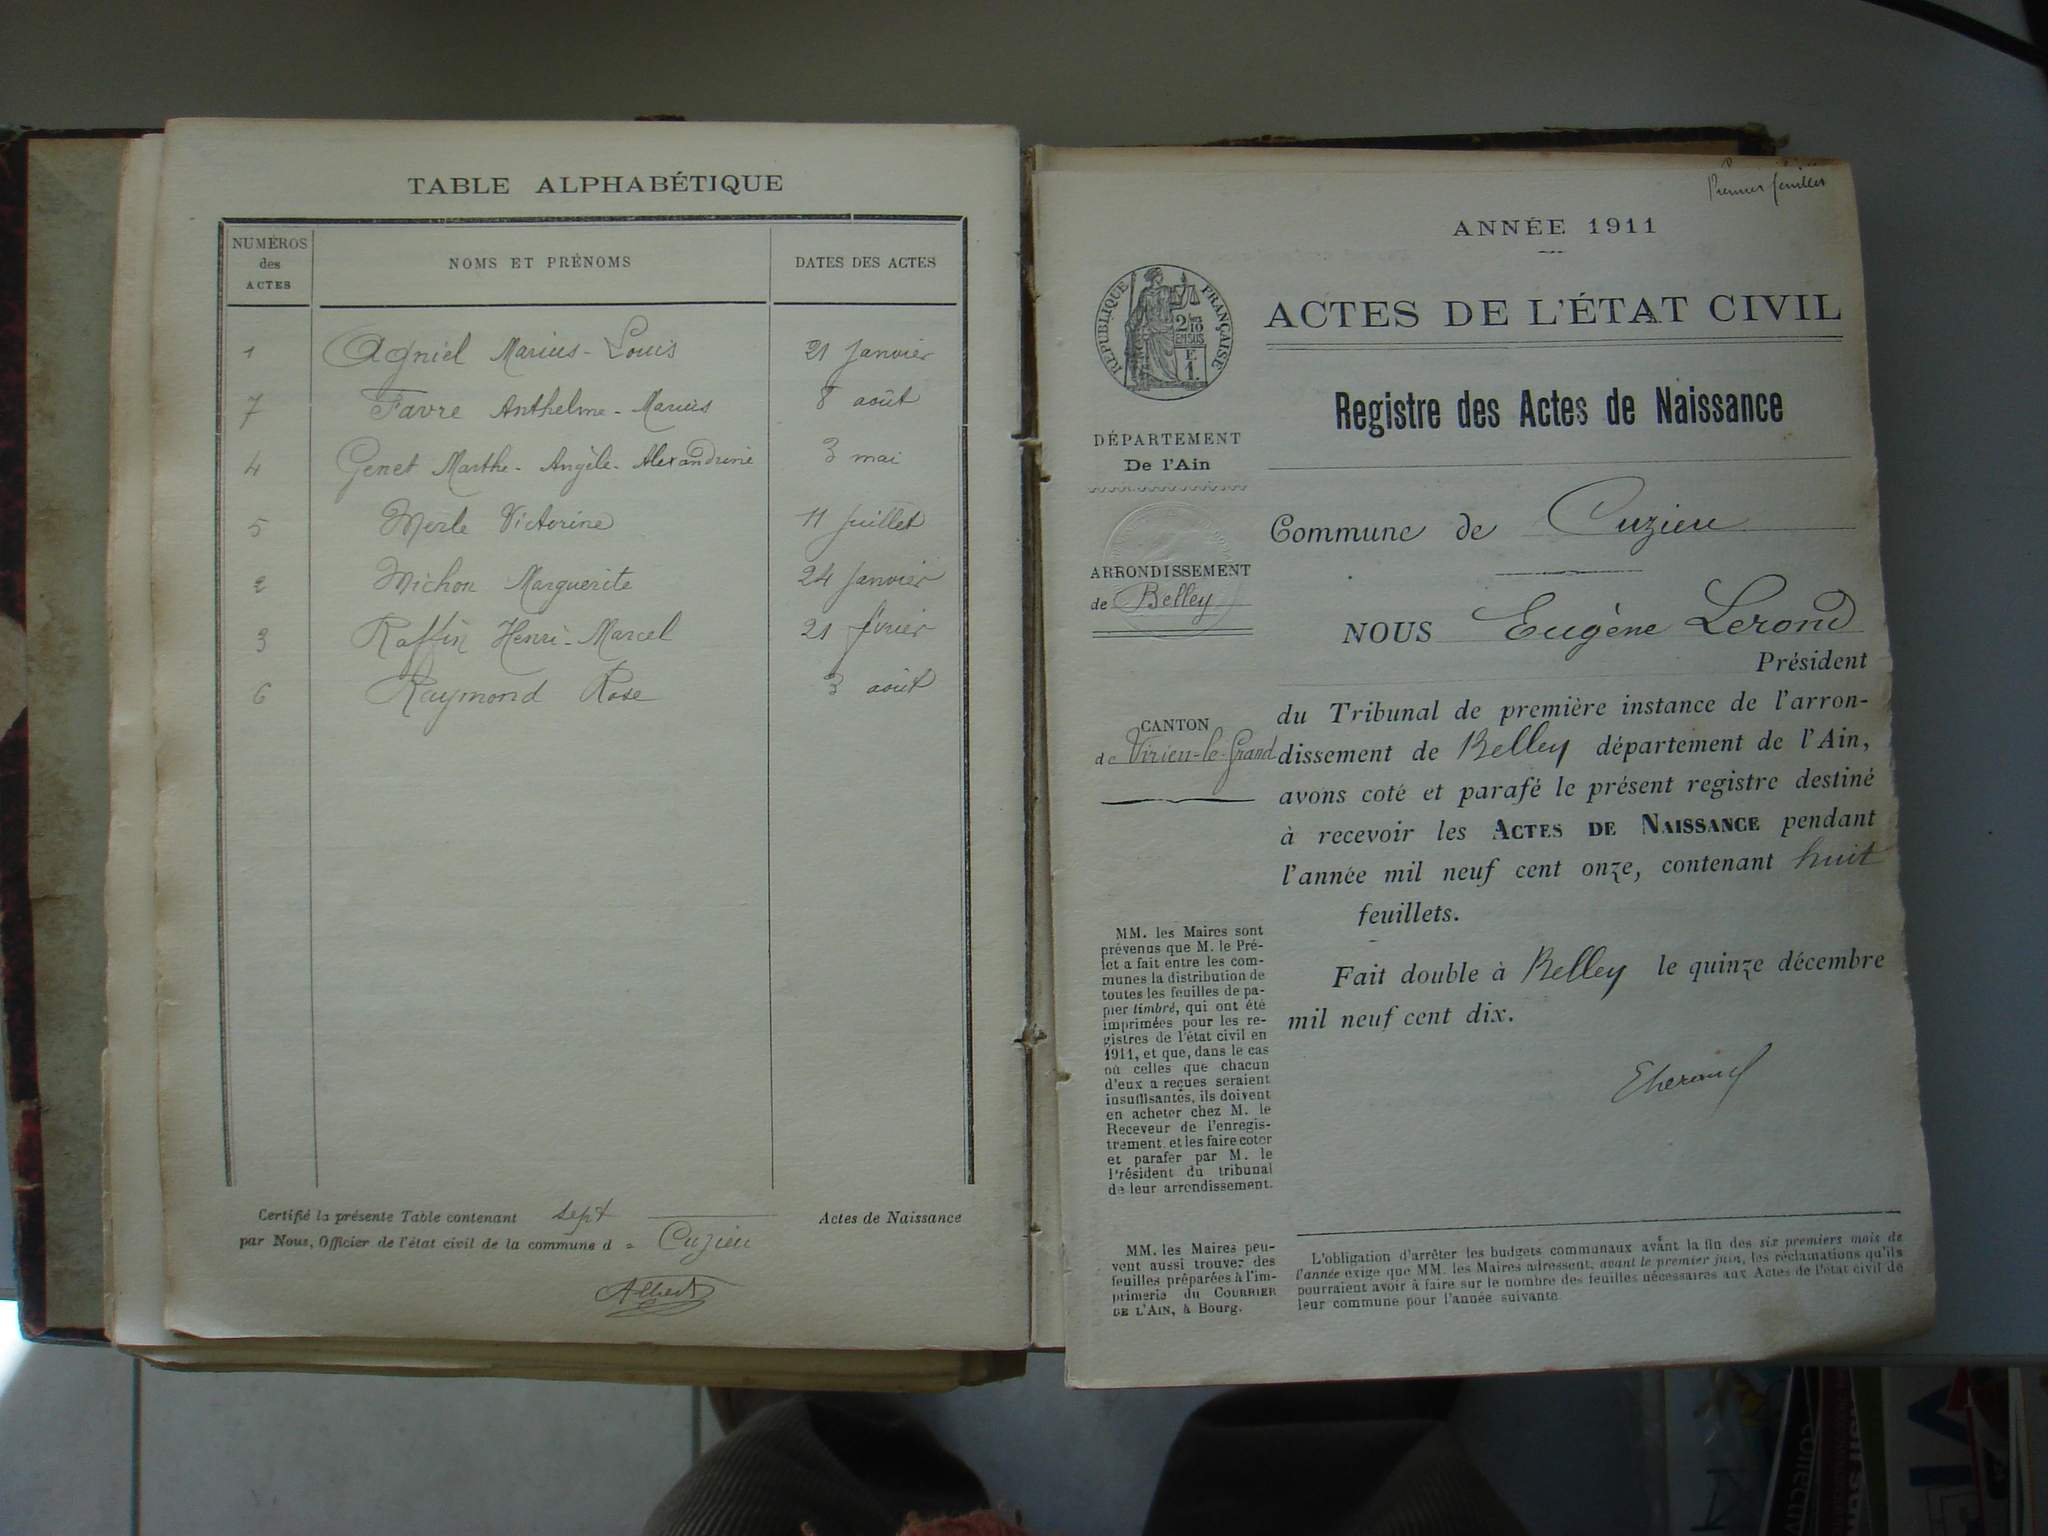 TABLE ALPHABÉTIQUE
NUMÉROS
des
ACTES
NOMS ET PRÉNOMS
DATES DES ACTES
1 Agniel Marius-Louis 21 Janvier
7 Favre Anthelme-Marius 8 août
4 Genet Marthe-Angèle-Alexandrine 3 mai
5 Merle Victorine 11 Juillet
2 Michon Marguerite 24 Janvier
3 Raffin Henri-Marcel 21 février
6 Raymond Rose 3 août
Certifié la présente Table contenant sept Actes de Naissance
par Nous, Officier de l'état civil de la commune d e Cuzieu
Premier feuillet
ANNÉE 1911
RÉPUBLIQUE FRANÇAISE
2/10
EN SUS
E
1.
ACTES DE L'ÉTAT CIVIL
Registre des Actes de Naissance
DÉPARTEMENT
De l'Ain
Commune de Cuzieu
ARRONDISSEMENT
de Belley
NOUS Eugène Lerond
Président
du Tribunal de première instance de l'arron-
CANTON
de Virieu-le-Grand
dissement de Belley département de l'Ain,
avons coté et parafé le présent registre destiné
à recevoir les ACTES DE NAISSANCE pendant
l'année mil neuf cent onze, contenant huit
feuillets.
Fait double à Belley le quinze décembre
mil neuf cent dix.
MM. les Maires sont
prévenus que M. le Pré-
fet a fait entre les com-
munes la distribution de
toutes les feuilles de pa-
pier timbré, qui ont été
imprimées pour les re-
gistres de l'état civil en
1911, et que, dans le cas
où celles que chacun
d'eux a reçues seraient
insuffisantes, ils doivent
en acheter chez M. le
Receveur de l'enregis-
trement, et les faire coter
et parafer par M. le
Président du tribunal
de leur arrondissement.
MM. les Maires peu-
vent aussi trouver des
feuilles préparées à l'im-
primerie du COURRIER
DE L'AIN, à Bourg.
L'obligation d'arrêter les budgets communaux avant la fin des six premiers mois de
l'année exige que MM. les Maires adressent, avant le premier juin, les réclamations qu'ils
pourraient avoir à faire sur le nombre des feuilles nécessaires aux Actes de l'état civil de
leur commune pour l'année suivante.